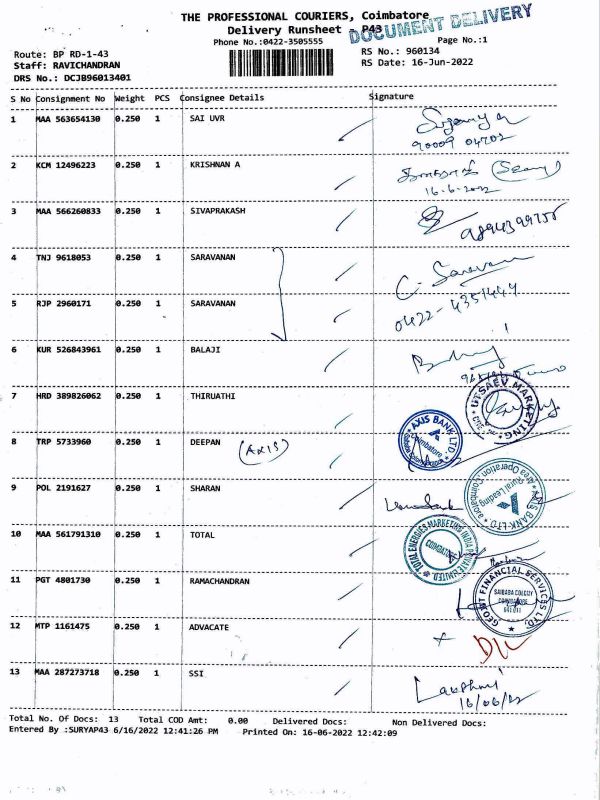 THE PROFESSIONAL COURIERS, Coimbatore
Delivery Runsheet - P43
DOCUMENT DELIVERY
Phone No.:0422-3505555
Page No.:1
Route: BP RD-1-43
RS No.: 960134
Staff: RAVICHANDRAN
RS Date: 16-Jun-2022
DRS No.: DCJB96013401
S No Consignment No Weight PCS Consignee Details Signature
1 MAA 563654130 0.250 1 SAI UVR
90009 04202
2 KCM 12496223 0.250 1 KRISHNAN A
16-6-2022
3 MAA 566260833 0.250 1 SIVAPRAKASH
4 TNJ 9618053 0.250 1 SARAVANAN
C. Saravanan
5 RJP 2960171 0.250 1 SARAVANAN
0422-4351444
6 KUR 526843961 0.250 1 BALAJI
7 HRD 389826062 0.250 1 THIRUATHI
UTSAEV MARKETING
AXIS BANK LTD
Coimbatore
8 TRP 5733960 0.250 1 DEEPAN (AXIS)
9 POL 2191627 0.250 1 SHARAN
AXIS BANK LTD
Rural Lending
Area Operation, Coimbatore
10 MAA 561791310 0.250 1 TOTAL
TOTAL ENERGIES MARKETING INDIA PRIVATE LIMITED
COIMBATORE
11 PGT 4801730 0.250 1 RAMACHANDRAN
GEOJIT FINANCIAL SERVICES LTD.
SAIBABA COLONY
COIMBATORE
641 011
12 MTP 1161475 0.250 1 ADVOCATE
13 MAA 287273718 0.250 1 SSI
Lakshmi
16/06/22
Total No. Of Docs: 13 Total COD Amt: 0.00 Delivered Docs: Non Delivered Docs:
Entered By :SURYAP43 6/16/2022 12:41:26 PM Printed On: 16-06-2022 12:42:09